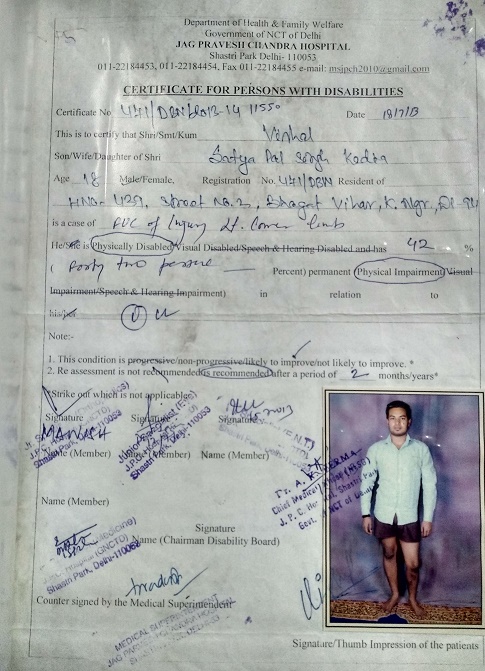 Department of Health & Family Welfare
Government of NCT of Delhi
JAG PRAVESH CHANDRA HOSPITAL
Shastri Park Delhi- 110053
011-22184453, 011-22184454, Fax 011-22184455 e-mail: msjpch2010@gmail.com
CERTIFICATE FOR PERSONS WITH DISABILITIES
Certificate No 441/DBN/2013-14 11550 Date 18/7/13
This is to certify that Shri/Smt/Kum Vishal
Son/Wife/Daughter of Shri Satya Pal Singh
Age 18 Male/Female, Registration No. 441/DBN Resident of
HNO- Street No. 2, Bhagat Vihar, K. Ngr, Dl-94
is a case of of Injury Lt. lower limb
He/She is Physically Disabled/Visual Disabled/Speech & Hearing Disabled and has 42 %
( Forty two Percent) permanent (Physical Impairment/Visual
Impairment/Speech & Hearing Impairment) in relation to
his/her
Note:-
1. This condition is progressive/non-progressive/likely to improve/not likely to improve. *
2. Re assessment is not recommended/is recommended after a period of 2 months/years*
*Strike out which is not applicable
Signature Signature Signature
MANASH
Name (Member) Name (Member) Name (Member)
Shastri Park, Delhi-110053
Name (Member)
Signature
Name (Chairman Disability Board)
Shastri Park, Delhi-110053
Counter signed by the Medical Superintendent
MEDICAL SUPERINTENDENT
Signature/Thumb Impression of the patients